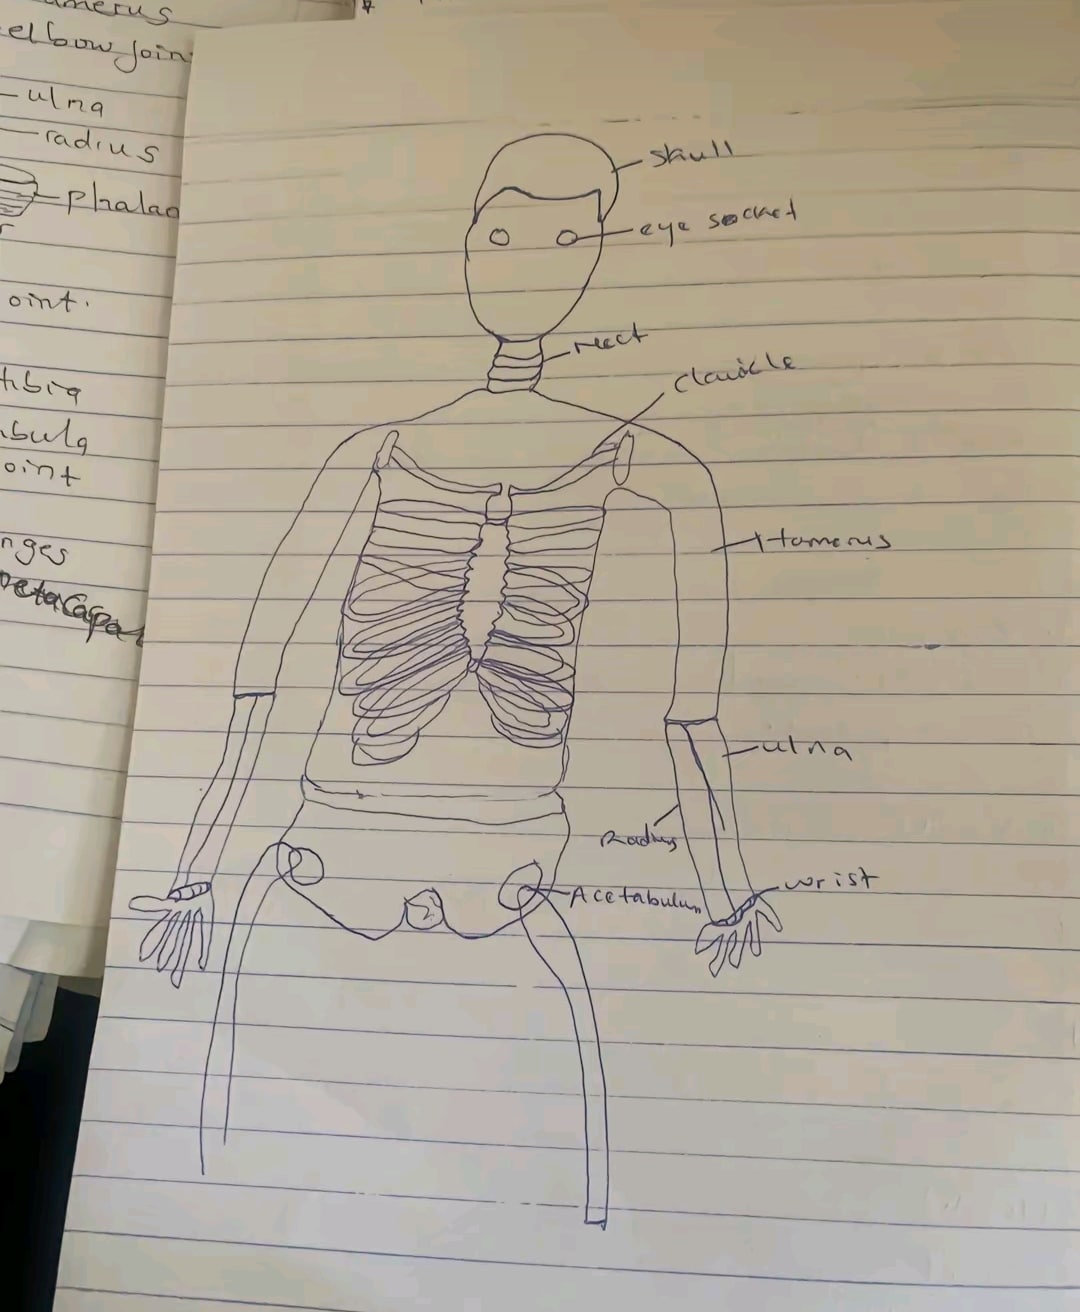 umerus
elbow join
ulna
radius
phalan
r
oint.
tibia
bula
oint
nges
metacapal
skull
eye socket
neck
clavicle
Humerus
ulna
Radius
wrist
Acetabulum